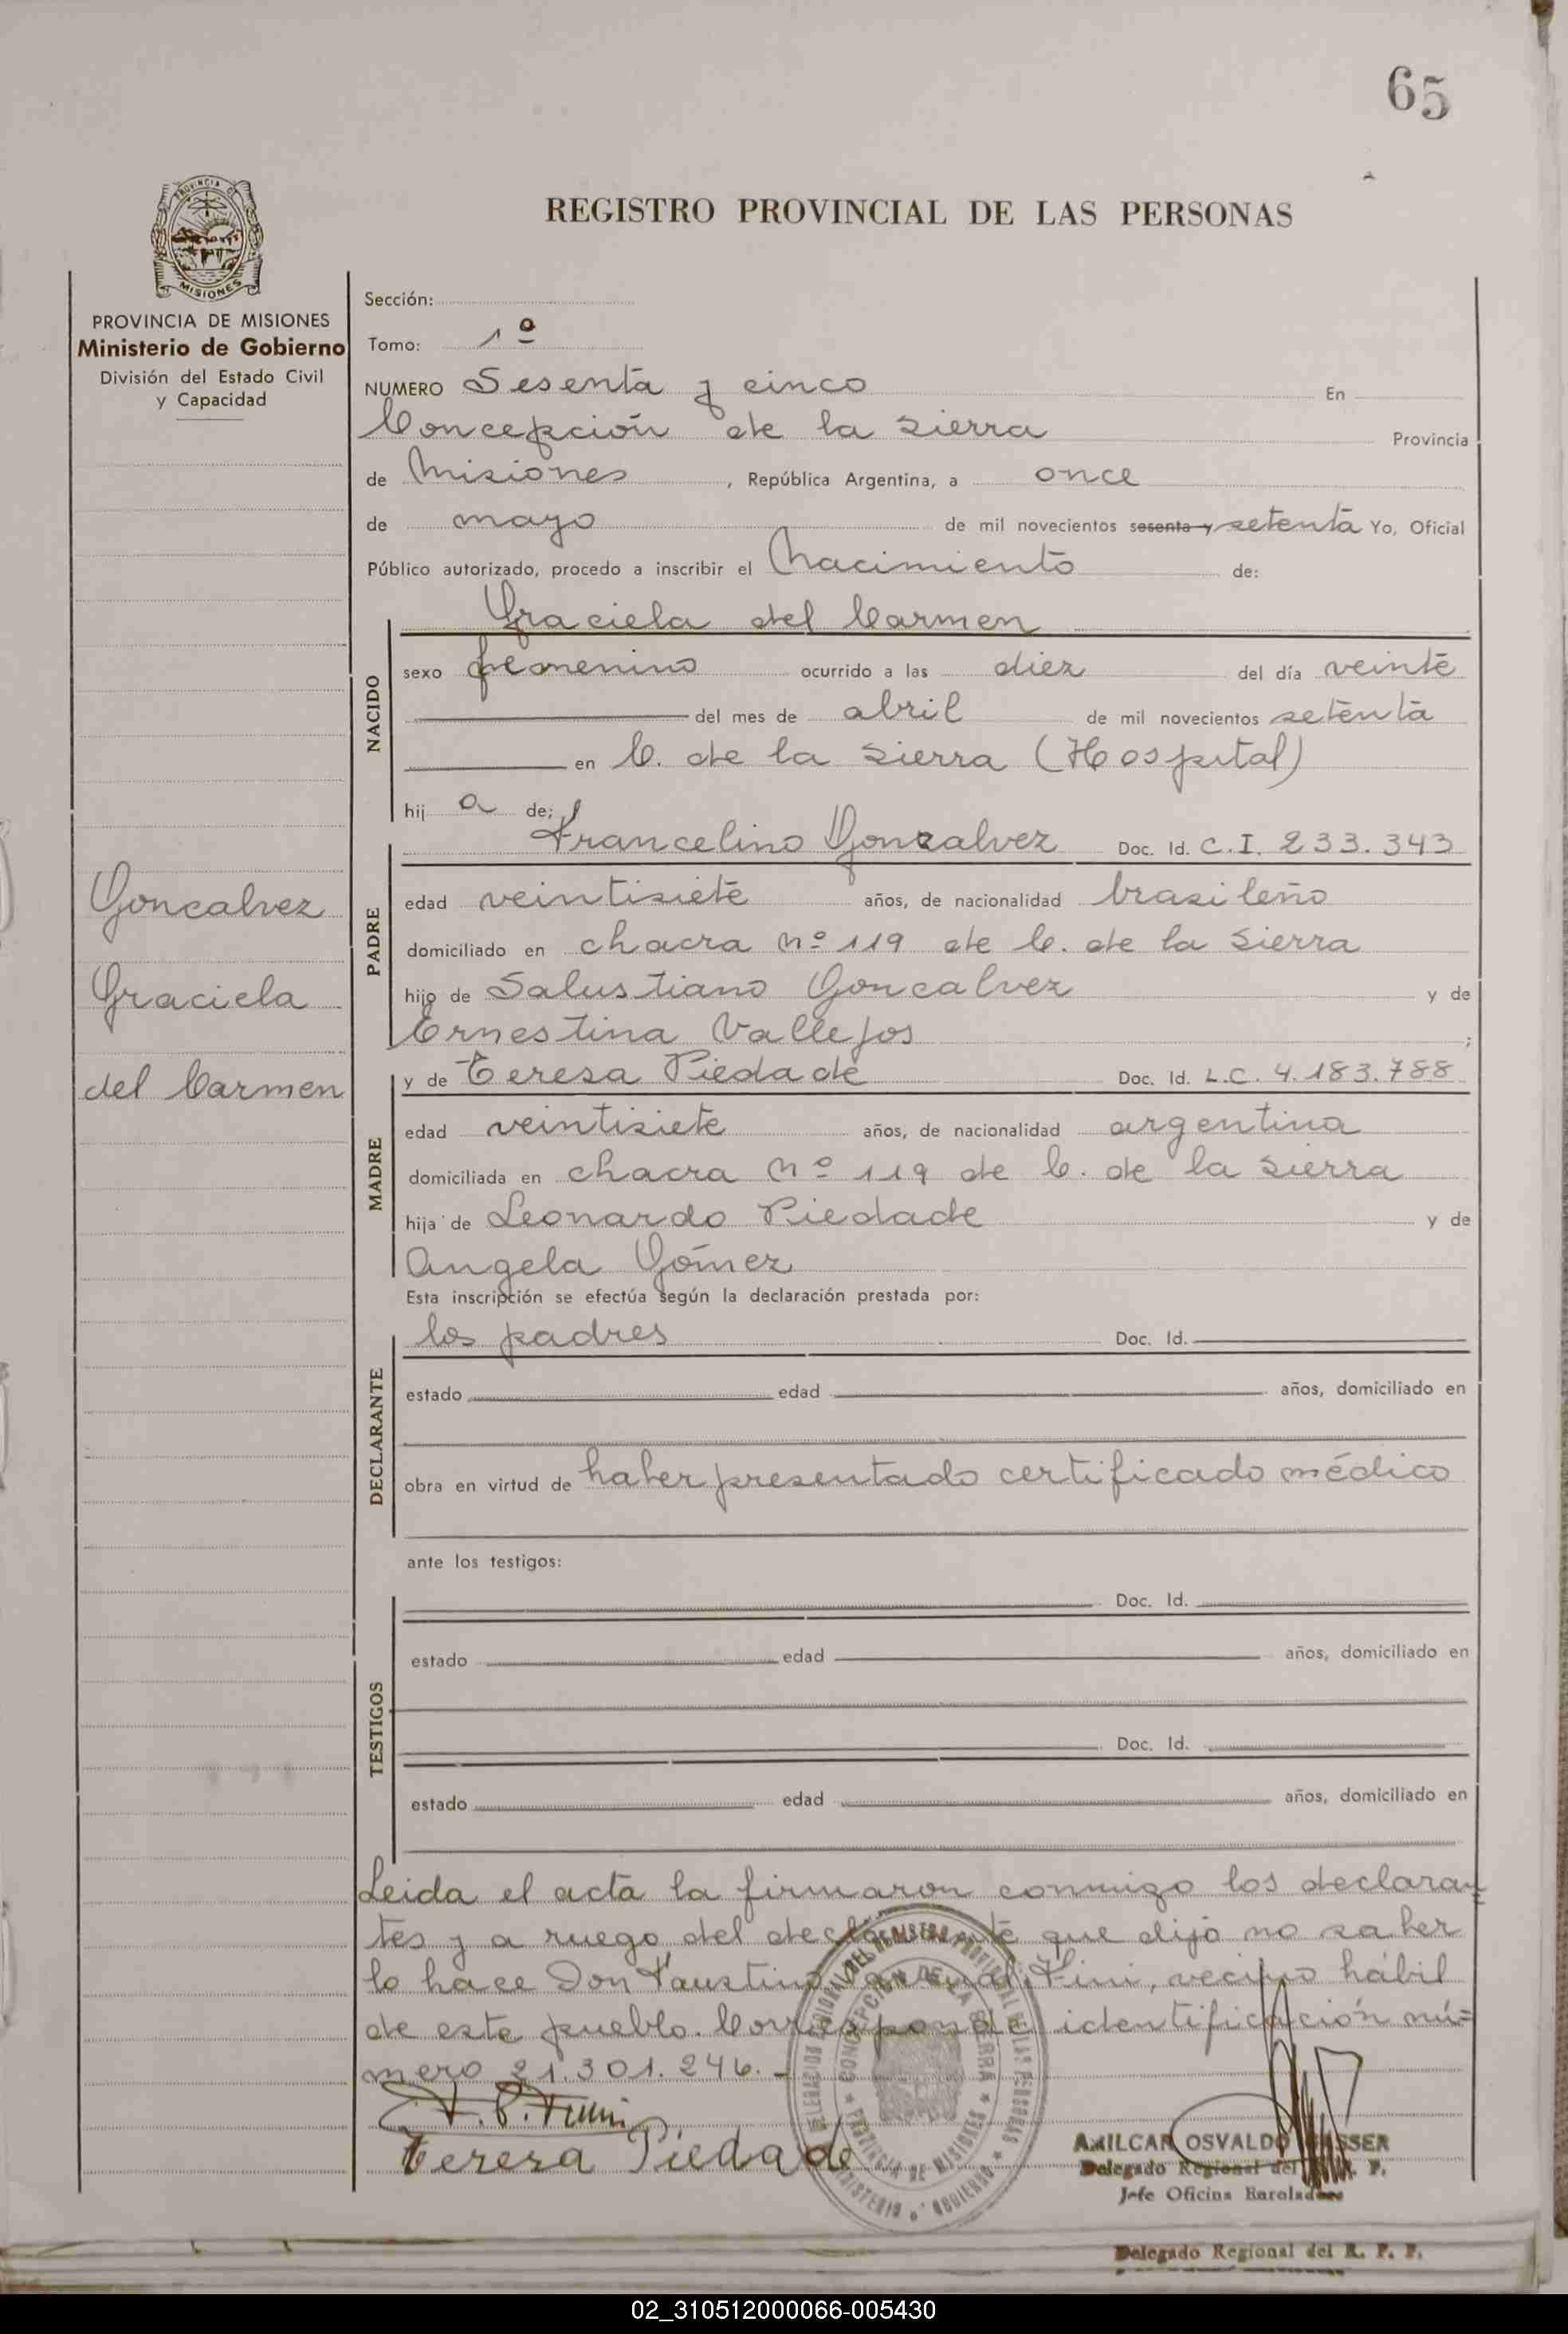 65
PROVINCIA DE
MISIONES
REGISTRO PROVINCIAL DE LAS PERSONAS
PROVINCIA DE MISIONES
Ministerio de Gobierno
División del Estado Civil
y Capacidad
Goncalvez
Graciela
del Carmen
Sección:
Tomo: 1º
NUMERO Sesenta y cinco En
Concepción de la Sierra Provincia
de Misiones, República Argentina, a once
de mayo de mil novecientos sesenta y setenta Yo, Oficial
Público autorizado, procedo a inscribir el Nacimiento de:
Graciela del Carmen
NACIDO
sexo femenino ocurrido a las diez del día veinte
del mes de abril de mil novecientos setenta
en C. de la Sierra (Hospital)
hij a de;
PADRE
Francelino Goncalvez Doc. Id. C.I. 233.343
edad veintisiete años, de nacionalidad brasileño
domiciliado en chacra nº 119 de C. de la Sierra
hijo de Salustiano Goncalvez y de
Ernestina Vallejos ;
MADRE
y de Teresa Piedade Doc. Id. L.C. 4.183.788
edad veintisiete años, de nacionalidad argentina
domiciliada en chacra nº 119 de C. de la Sierra
hija de Leonardo Piedade y de
Angela Gómez
Esta inscripción se efectúa según la declaración prestada por:
DECLARANTE
los padres Doc. Id.
estado edad años, domiciliado en
obra en virtud de haber presentado certificado médico
ante los testigos:
TESTIGOS
Doc. Id.
estado edad años, domiciliado en
Doc. Id.
estado edad años, domiciliado en
Leida el acta la firmaron conmigo los declaran
tes y a ruego del declarante que dijo no saber
lo hace Don Faustino Fini, vecino hábil
de este pueblo. Corresponde identificación nú=
mero 21.301.246.-
Teresa Piedade
CONCEPCION DE LA SIERRA
PROVINCIA DE MISIONES
AMILCAR OSVALDO
Delegado Regional del R. P. P.
Jefe Oficina
Delegado Regional del R. P. P.
02_310512000066-005430